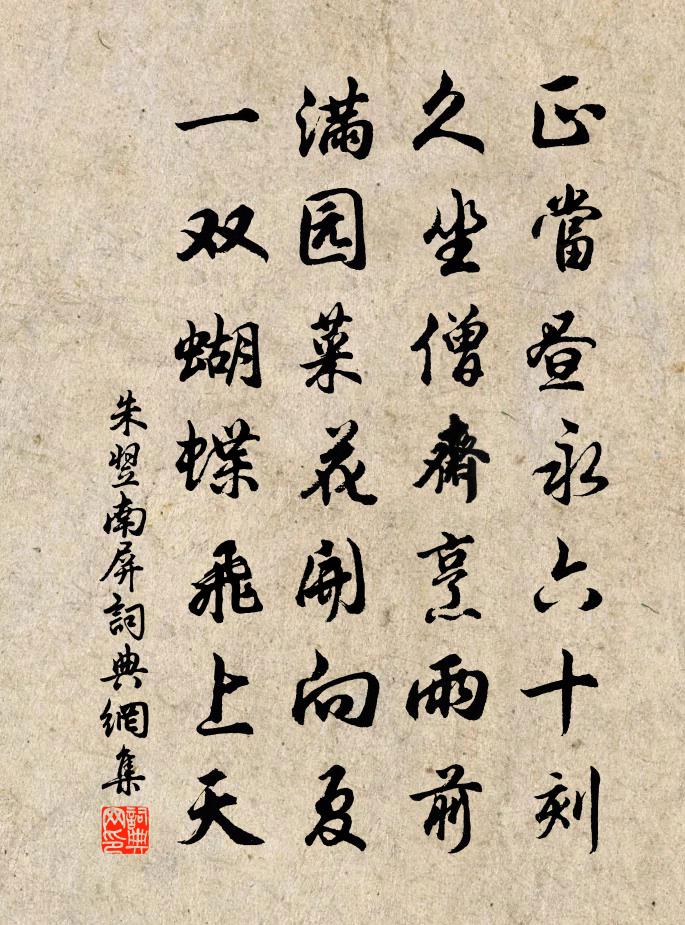 正當昼永六十刻
久坐僧齋烹雨前
满园菜花開向夏
一双蝴蝶飛上天
朱翌南屏詞典網集
詞典网印